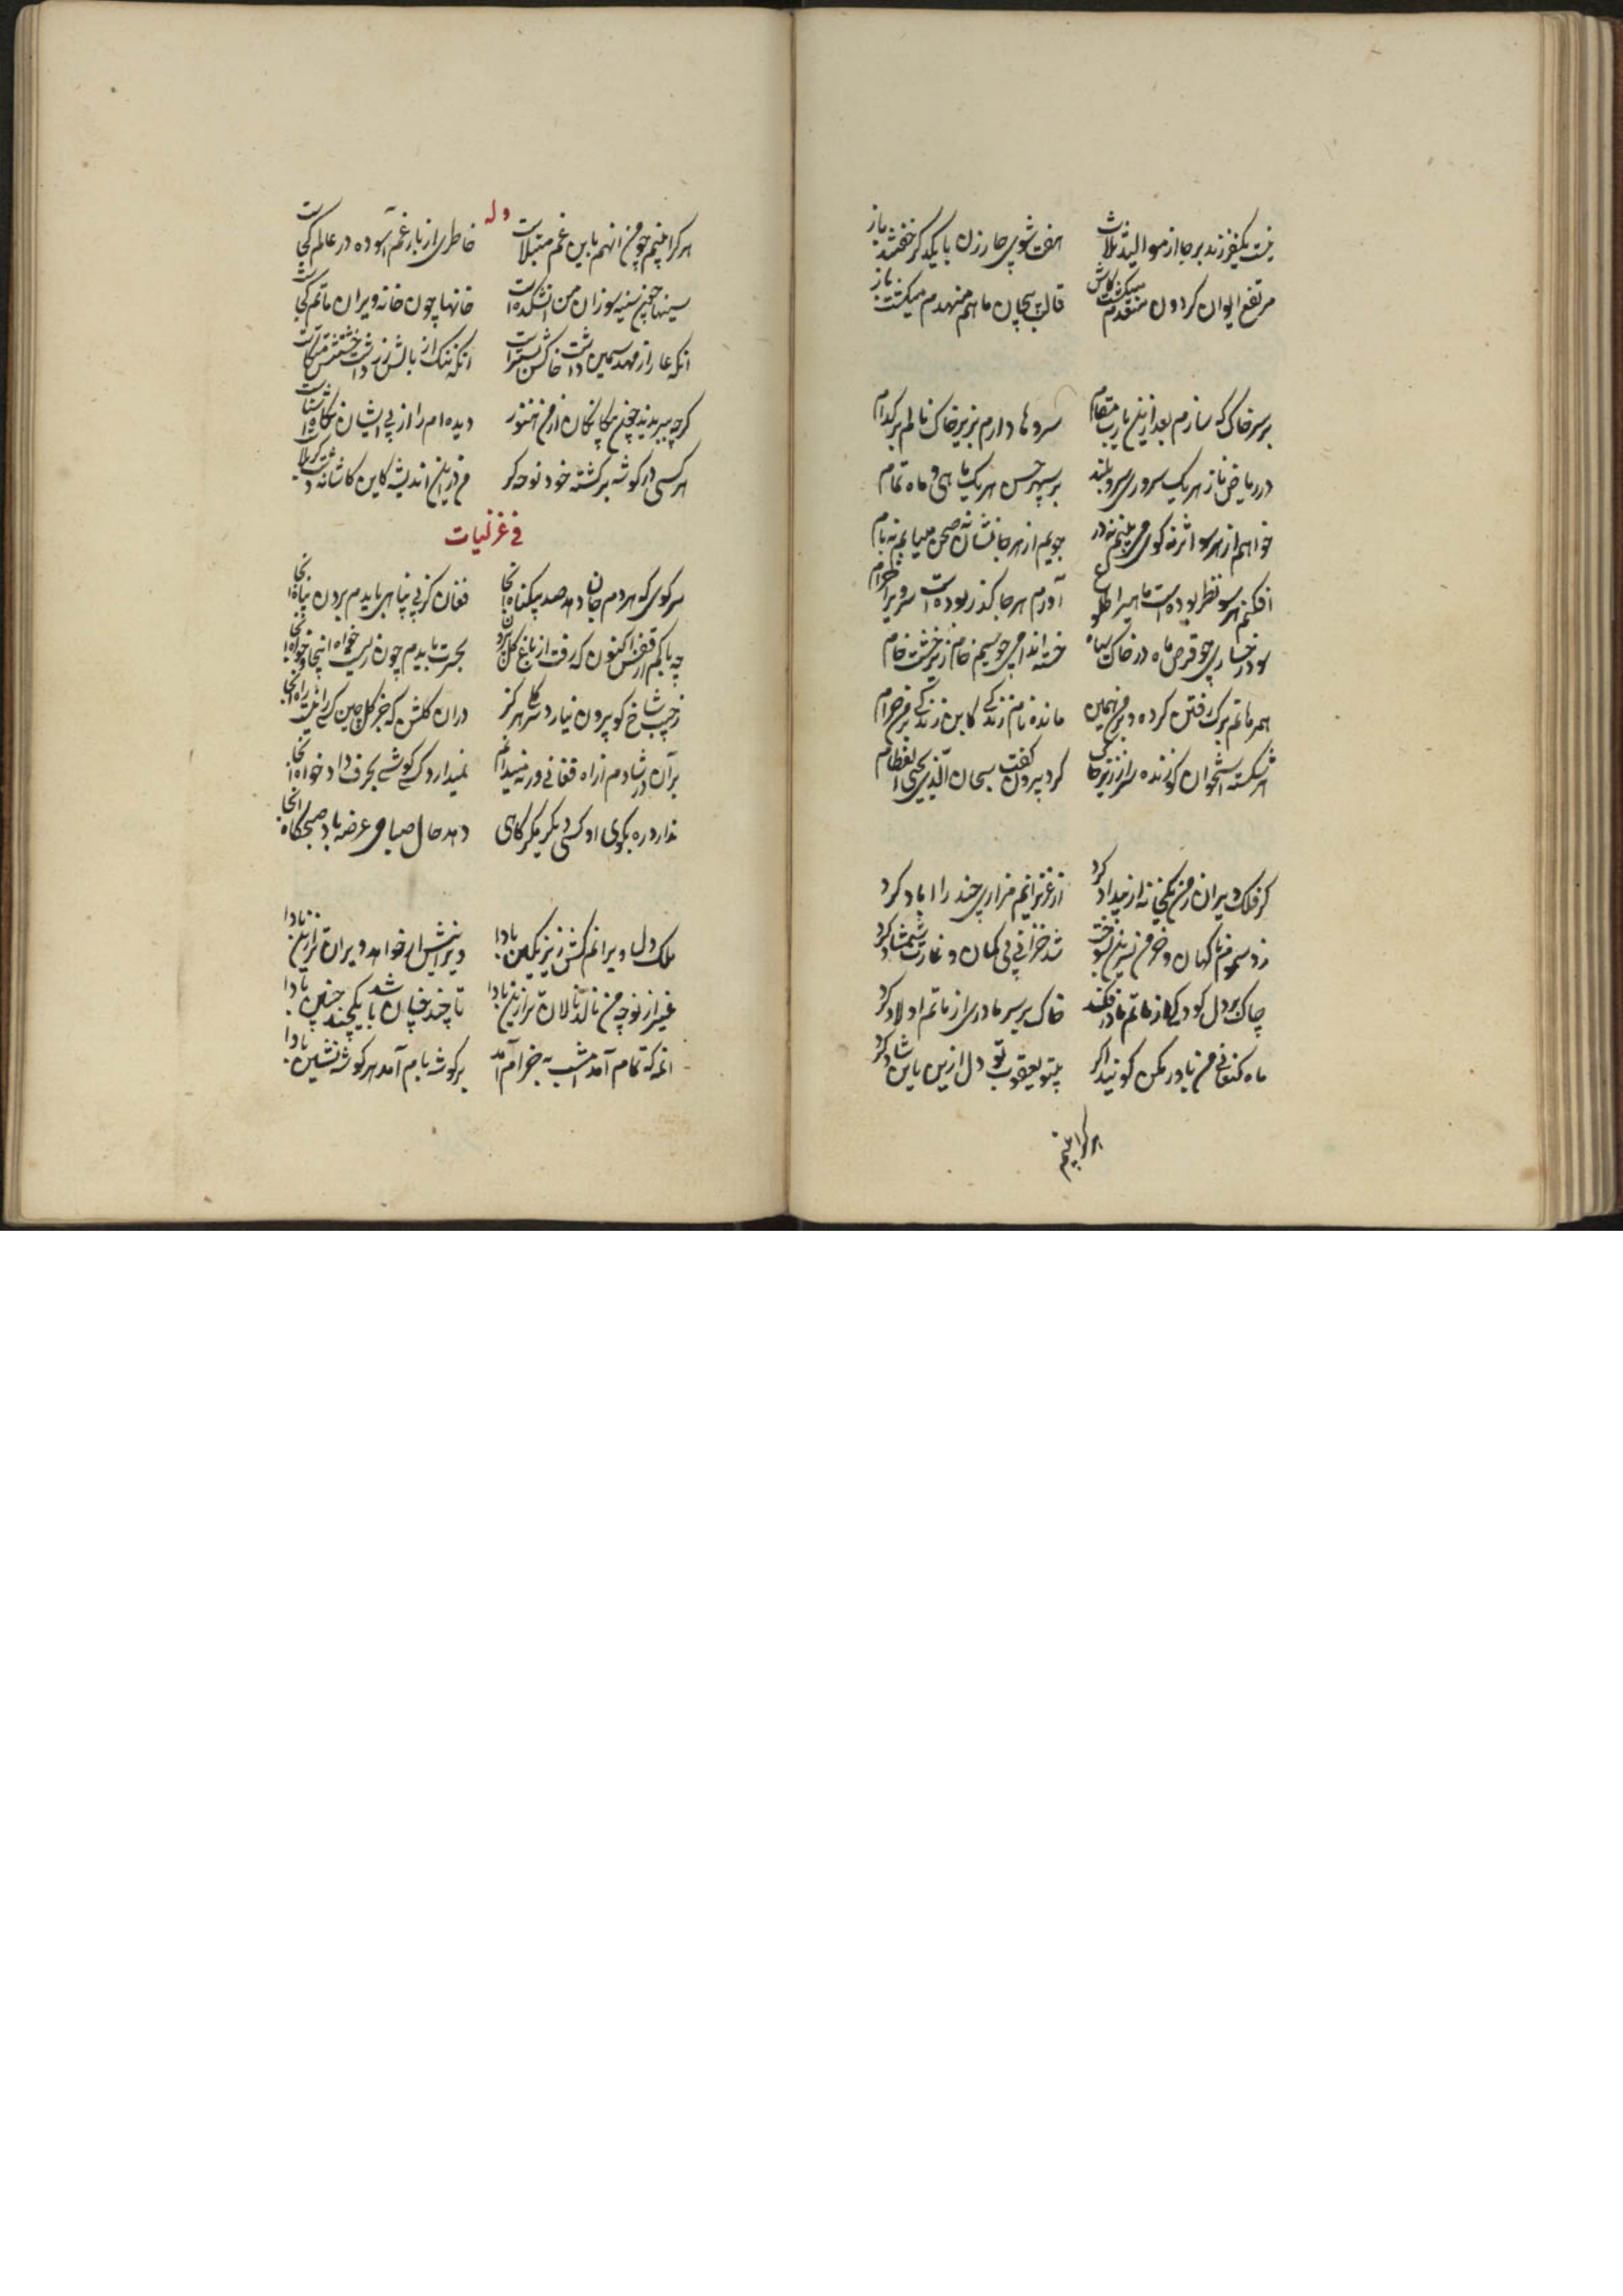 نیست یکفرزند برجا از موالید ثلاث هفت شوی چار زن با یکدگر خفتند باز
مرتفع ایوان کردون منهدم میکشت کاش قالب بیجان ما هم منهدم میکشت باز
بر سر خاک که سازم بعد ازین یارب مقام سروها دارم بزیر خاک نالم بر کدام
در ریاض ناز هر یک سروری سرو بلند بر سپهر حسن هر یک ماهی و ماه تمام
خواهم از هر سو اثر نه کوی می بینم نه در جویم از هر جا نشان نه صحن مییابم نه بام
افکنم هر سو نظر بوده است ماهی را طلوع آورم هر جا گذر بوده است سروی را خرام
بود رخساری چو قرص ماه در خاک سیاه خسته اندامی چو سیم خام زیر خشت خام
همرهانم ترک رفتن کرده و بر من همین مانده نام زندگی کاین زندگی بر من حرام
هر شکسته استخوان کو زنده سر از زیر خاک کرد بیرون گفت سبحان الذی یحیی العظام
کر فلک ویران ز من یکخانه از بیداد کرد از عزیزانم مزاری چند را آباد کرد
زد سموم ناگهان و خرمن نسرین بسوخت شد خزانی بی کمان و غارت شمشاد کرد
چاک بر دل کودکی از ماتم مادر فکند خاک بر سر مادری از ماتم اولاد کرد
ماه کنعانی من باور مکن کوئید اگر بیتو یعقوب تو دل از این و آن شاد کرد
هر کرا بینم
وله
هر کرا بینم چو من آنهم باین غم مبتلاست خاطری از بار غم آسوده در عالم کجاست
سینها چون سینه سوزان من آتشکده است خانها چون خانه ویران ماتم کجاست
آنکه عار از مهد سیمین داشت خاکش بستر است آنکه ننک از بالش زر داشت خشتش متکاست
کرچه ببریدند چون بیکانکان از من هنوز دیده ام را از پی ایشان نگاه آشناست
هر کسی در کوشه بر کشته خود نوحه کر من درین اندیشه کاین کاشانه دشت کربلاست
فی غزلیات
سر کوی که هر دم جان دهد صد بیکناه آنجا فغان کز بی پناهی بایدم بردن پناه آنجا
چه باکم از قفس اکنون که رفت از باغ گل بیرون بحسرت بایدم چون زیست خواه اینجا و خواه آنجا
ز جیب شاخ کو بیرون نیارد سر کلی هرگز در آن کلشن که جز کلچین کسی را نیست راه آنجا
بر آن در شادم از راه فغانی ورنه میدانم نمیدارد کسی گوشی بحرف دادخواه آنجا
ندارد ره بکوی او کسی دیگر مگر گاهی دهد حال صباحی عرضه باد صبحگاه آنجا
ملک دل ویرانم کش زیر نگین بادا ویرانیش ار خواهد ویران تر ازین بادا
غیر از تو چو من نالد نالان تر ازین بادا تا چند چنان باشد یکچند چنین بادا
آنمه که تمام آمد امشب بخرام آمد بر کوشه بام آمد هر گوشه نشین بادا